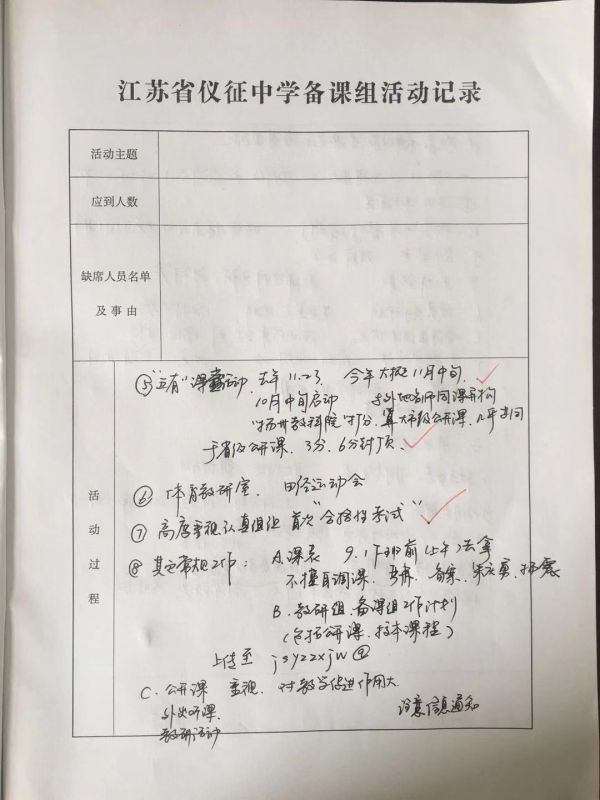 江苏省仪征中学备课组活动记录
活动主题
应到人数
缺席人员名单
及事由
活动过程
⑤ "五有"课 活动 去年11.23 今年大概11月中旬
10月中旬启动 与外地名师同课异构
"扬州教科院"打分,算大市级公开课,几年未间
于省级公开课,3分,6分封顶.
⑥ 体育教研室, 田径运动会
⑦ 高度重视认真组织首次"合格性考试"
⑧ 其它常规工作: A.课表 9.1下班前(上午)去拿
不擅自调课,
B.教研组,备课组工作计划
(包括公开课,校本课程)
上传至 jsyzzxjw@
C.公开课 重视, 对教学促进作用大
外出听课,
教研活动
注意信息通知